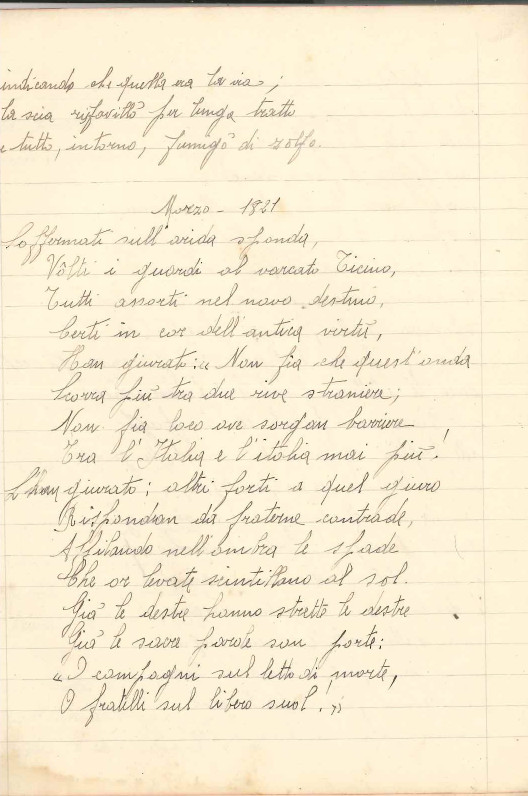 indicando che quella era la via;
la scia rifavillò per lungo tratto
e tutto, intorno, fumigò di zolfo.
Marzo - 1821
Soffermati sull'arida sponda,
Vòlti i guardi al varcato Ticino,
Tutti assorti nel novo destino,
Certi in cor dell'antica virtù,
Han giurato: « Non fia che quest'onda
Scorra più tra due rive straniere;
Non fia loco ove sorgan barriere
Tra l'Italia e l'italia mai più!
L'han giurato; altri forti a quel giuro
Rispondean da fraterne contrade,
Affilando nell'ombra le spade
Che or levate scintillano al sol.
Già le destre hanno strette le destre
Già le sacre parole son porte:
« O compagni sul letto di morte,
O fratelli sul libero suol! »